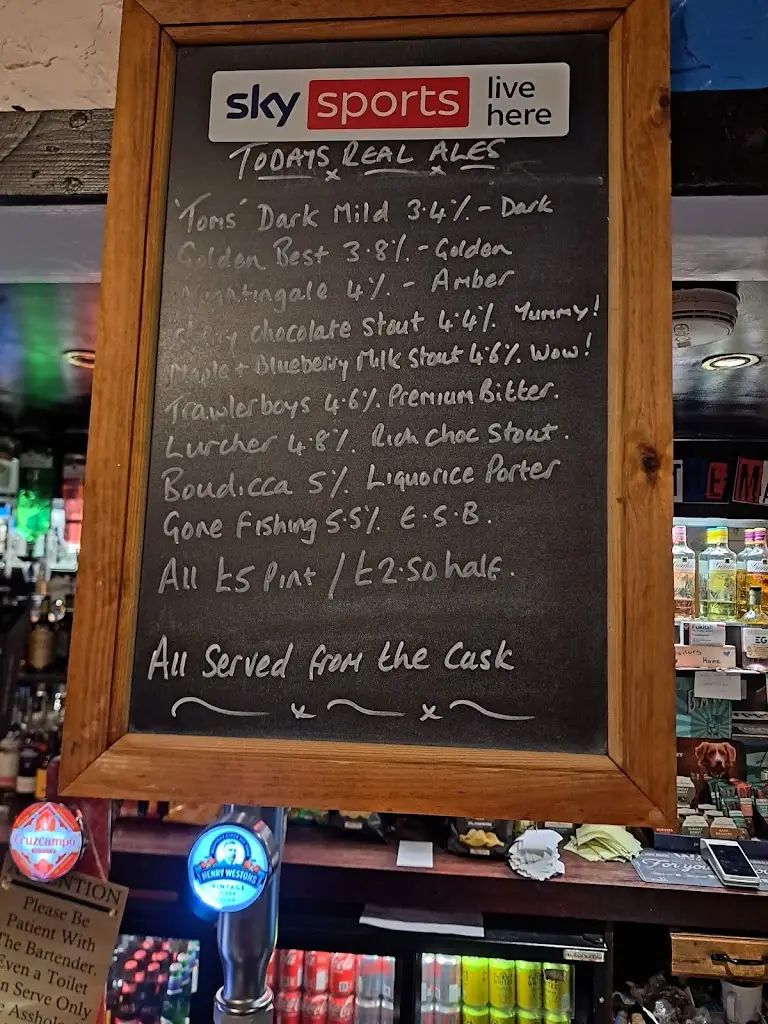 sky sports live here
TODAYS REAL ALES
'Toms' Dark Mild 3.4% - Dark
Golden Best 3.8% - Golden
Nightingale 4% - Amber
cherry chocolate Stout 4.4% Yummy!
Maple + Blueberry Milk Stout 4.6% Wow!
Trawlerboys 4.6% Premium Bitter.
Lurcher 4.8% Rich Choc Stout.
Boudicca 5% Liquorice Porter
Gone Fishing 5.5% E.S.B.
All £5 Pint / £2.50 half.
All Served from the Cask
Cruzcampo
HENRY WESTONS
VINTAGE
Please Be
Patient With
The Bartender.
Even a Toilet
n Serve Only